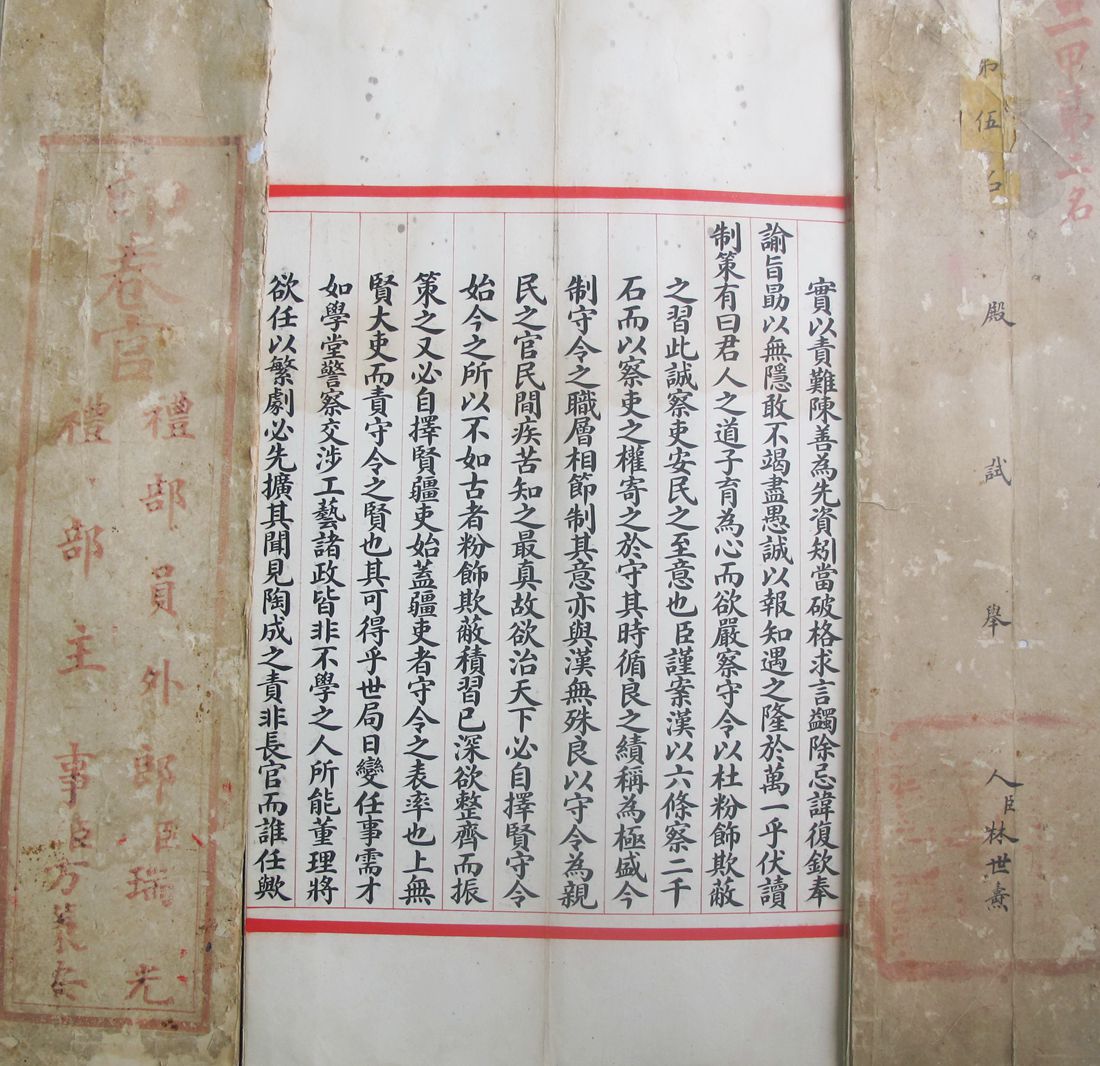 二甲第二名
第伍
殿試舉人臣林世燾
實以責難陳善為先資矧當破格求言蠲除忌諱復欽奉
諭旨勗以無隱敢不竭盡愚誠以報知遇之隆於萬一乎伏讀
制策有曰君人之道子育為心而欲嚴察守令以杜粉飾欺蔽
之習此誠察吏安民之至意也臣謹案漢以六條察二千
石而以察吏之權寄之於守其時循良之績稱為極盛今
制守令之職層相節制其意亦與漢無殊良以守令為親
民之官民間疾苦知之最真故欲治天下必自擇賢守令
始今之所以不如古者粉飾欺蔽積習已深欲整齊而振
策之又必自擇賢疆吏始蓋疆吏者守令之表率也上無
賢大吏而責守令之賢也其可得乎世局日變任事需才
如學堂警察交涉工藝諸政皆非不學之人所能董理將
欲任以繁劇必先擴其聞見陶成之責非長官而誰任歟
印卷官
禮部員外郎臣瑞光
禮部主事臣方